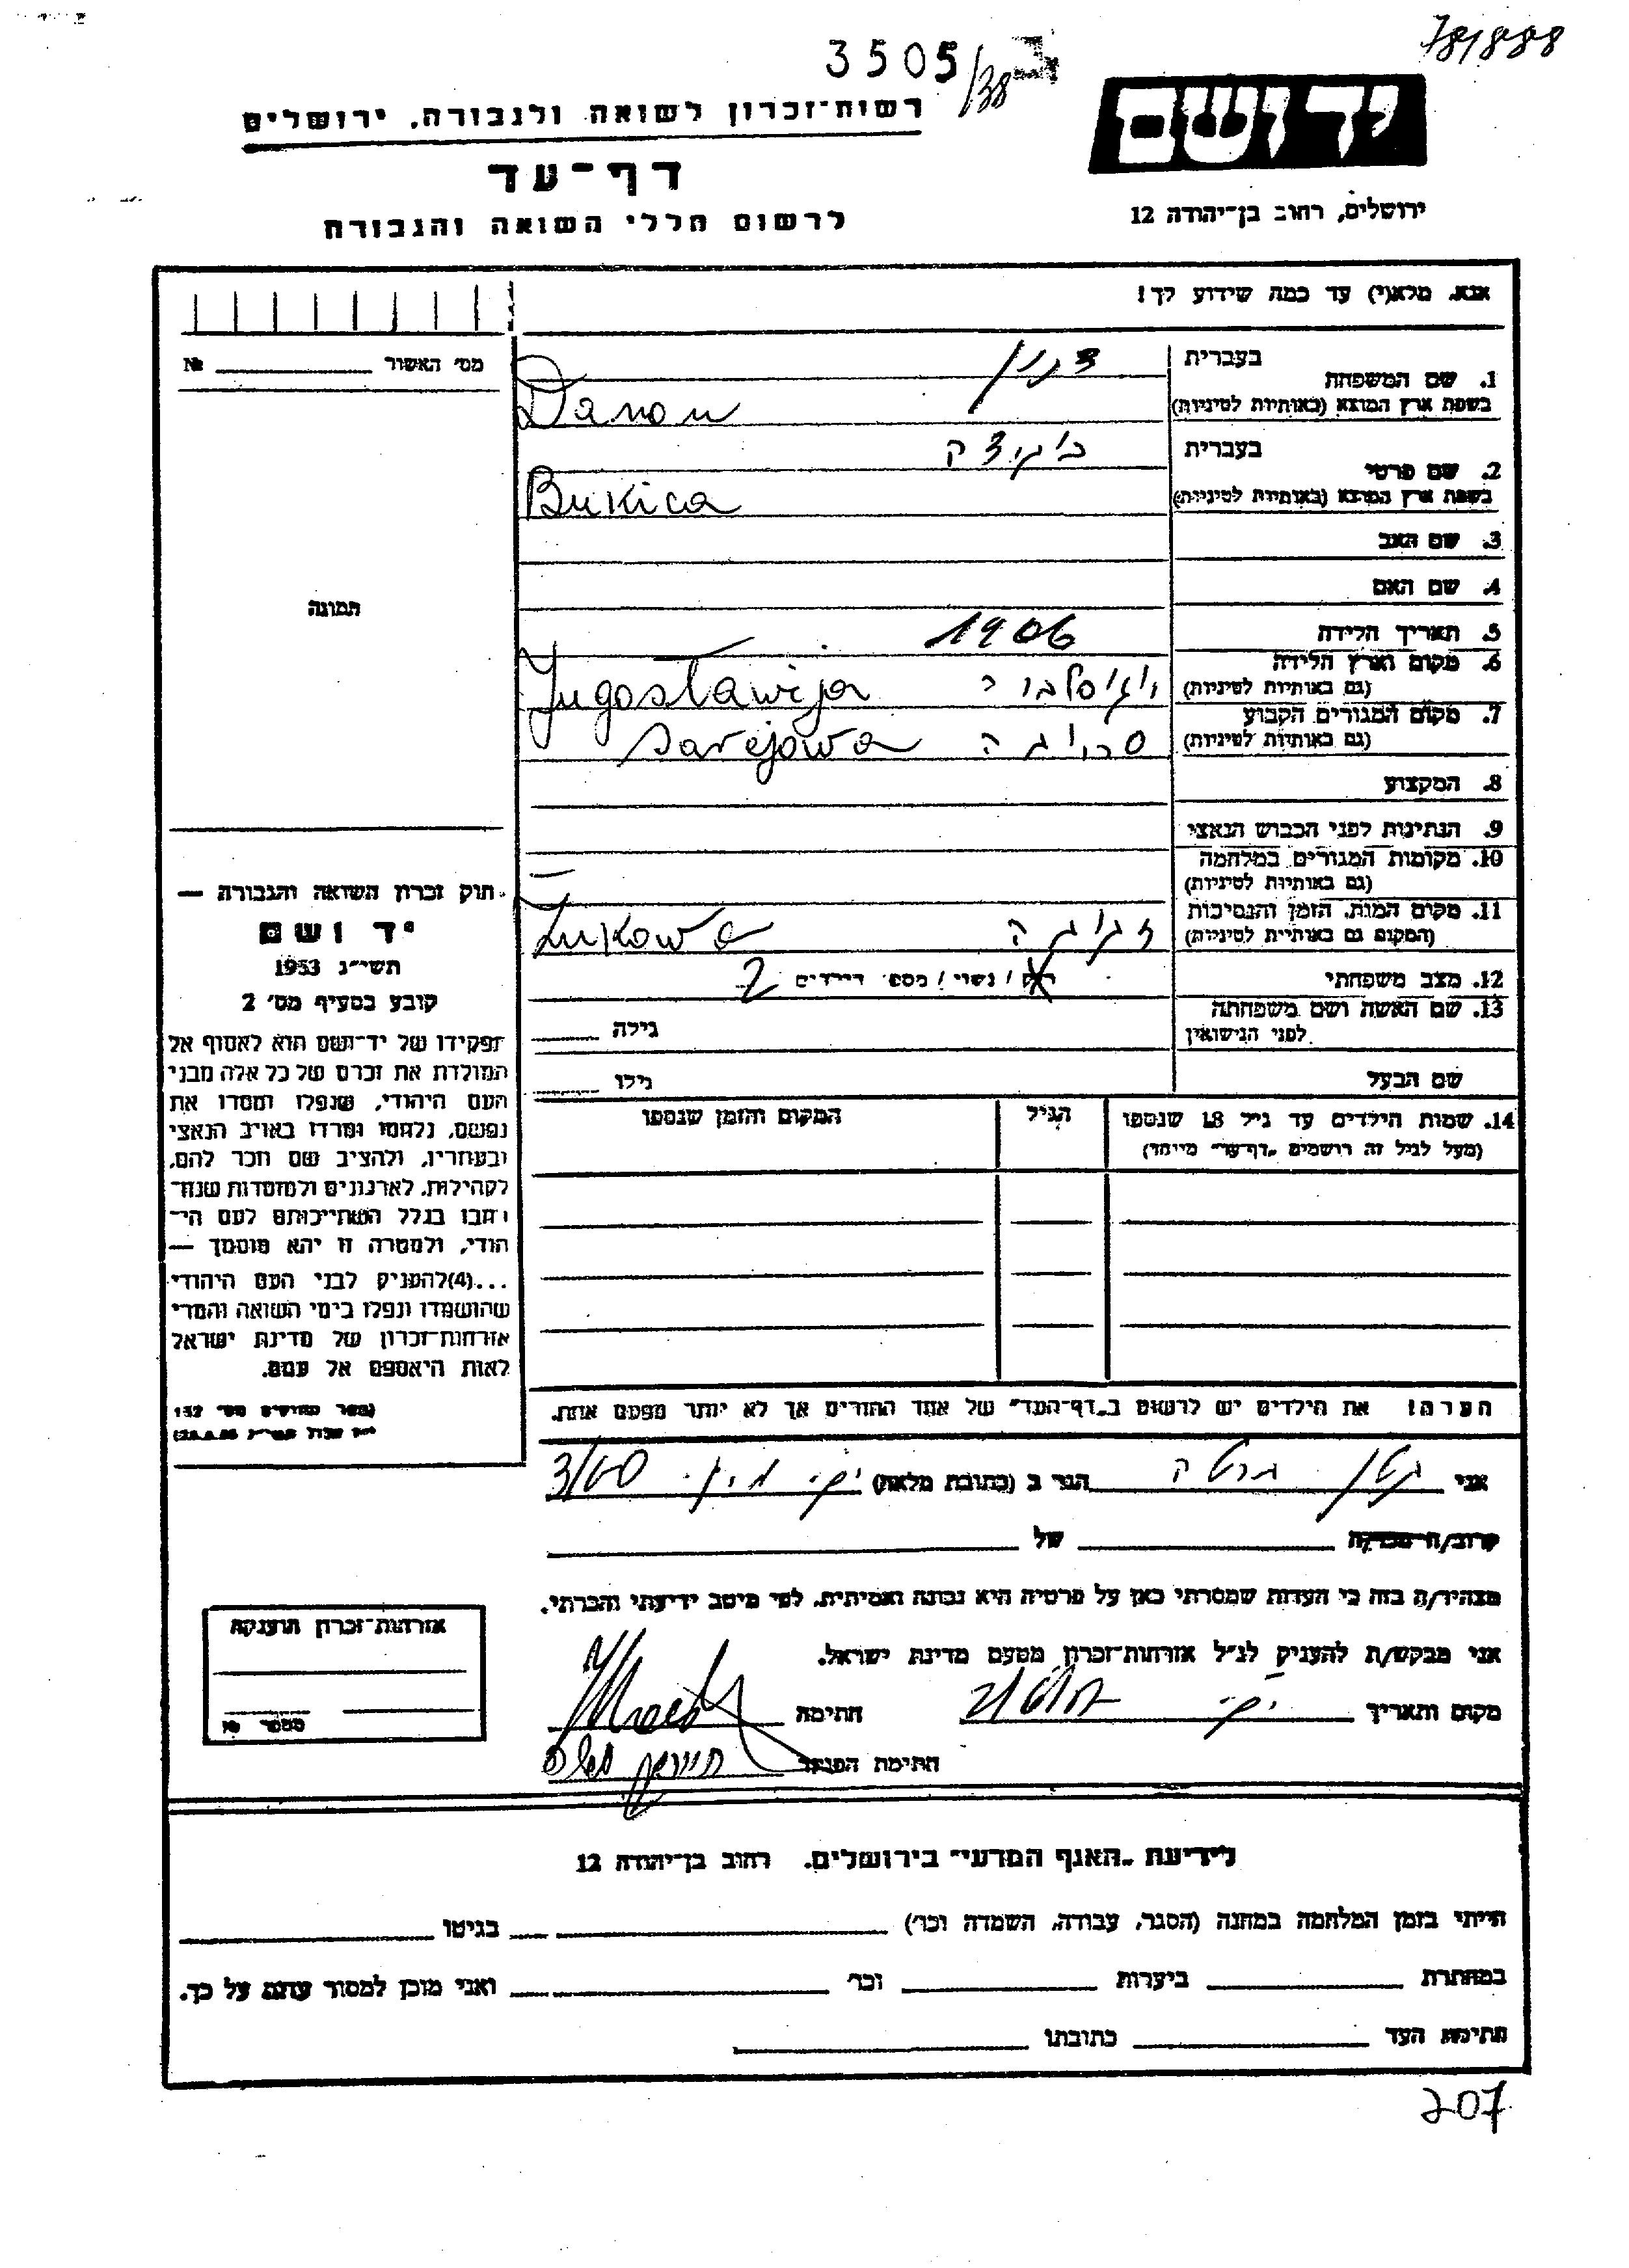 78/888
3505/38
יד ושם
רשות־זכרון לשואה ולגבורה, ירושלים
דף־עד
לרשום חללי השואה והגבורה
ירושלים, רחוב בן־יהודה 12
אנא, מלא(י) עד כמה שידוע לך!
מס׳ האשור №
בעברית
1. שם המשפחה
בשפת ארץ המוצא (באותיות לטיניות) Danon
בעברית
2. שם פרטי
בשפת ארץ המוצא (באותיות לטיניות) Bukica
3. שם האב
4. שם האם
תמונה
5. תאריך הלידה 1906
6. מקום וארץ הלידה
(גם באותיות לטיניות) Jugoslawija
7. מקום המגורים הקבוע
(גם באותיות לטיניות) Sarejowa
8. המקצוע
9. הנתינות לפני הכבוש הנאצי
10. מקומות המגורים במלחמה
(גם באותיות לטיניות)
11. מקום המות, הזמן והנסיבות
(המקום גם באותיות לטיניות)
12. מצב משפחתי רוק / נשוי / מספר הילדים 2
13. שם האשה ושם משפחתה
לפני הנישואין גילה
שם הבעל גילו
14. שמות הילדים עד גיל 18 שנספו הגיל המקום והזמן שנספו
(מעל לגיל זה רושמים "דף־עד" מיוחד)
חוק זכרון השואה והגבורה —
יד ושם
תשי״ג 1953
קובע בסעיף מס׳ 2
תפקידו של יד־ושם הוא לאסוף אל
המולדת את זכרם של כל אלה מבני
העם היהודי, שנפלו ומסרו את
נפשם, נלחמו ומרדו באויב הנאצי
ובעוזריו, ולהציב שם וזכר להם,
לקהילות, לארגונים ולמוסדות שנח־
רבו בגלל השתייכותם לעם הי־
הודי, ולמטרה זו יהא מוסמך —
...(4) להעניק לבני העם היהודי
שהושמדו ונפלו בימי השואה והמרי
אזרחות־זכרון של מדינת ישראל
לאות היאספם אל עמם.
(ספר החוקים מס׳ 132
הערה! את הילדים יש לרשום ב"דף־העד" של אחד ההורים אך לא יותר מפעם אחת.
אני הגר ב (כתובת מלאה)
קרוב/ה של
מצהיר/ה בזה כי העדות שמסרתי כאן על פרטיה היא נכונה ואמיתית, לפי מיטב ידיעתי והכרתי.
אני מבקש/ת להעניק לנ״ל אזרחות־זכרון מטעם מדינת ישראל.
מקום ותאריך חתימה
חתימת הפוקד
אזרחות־זכרון הוענקה
מספר №
לידיעת "האגף המדעי" בירושלים, רחוב בן־יהודה 12
הייתי בזמן המלחמה במחנה (הסגר, עבודה, השמדה וכו׳) בגיטו
במחתרת ביערות וכו׳ ואני מוכן למסור עדות על כך.
חתימת העד כתובתו
207